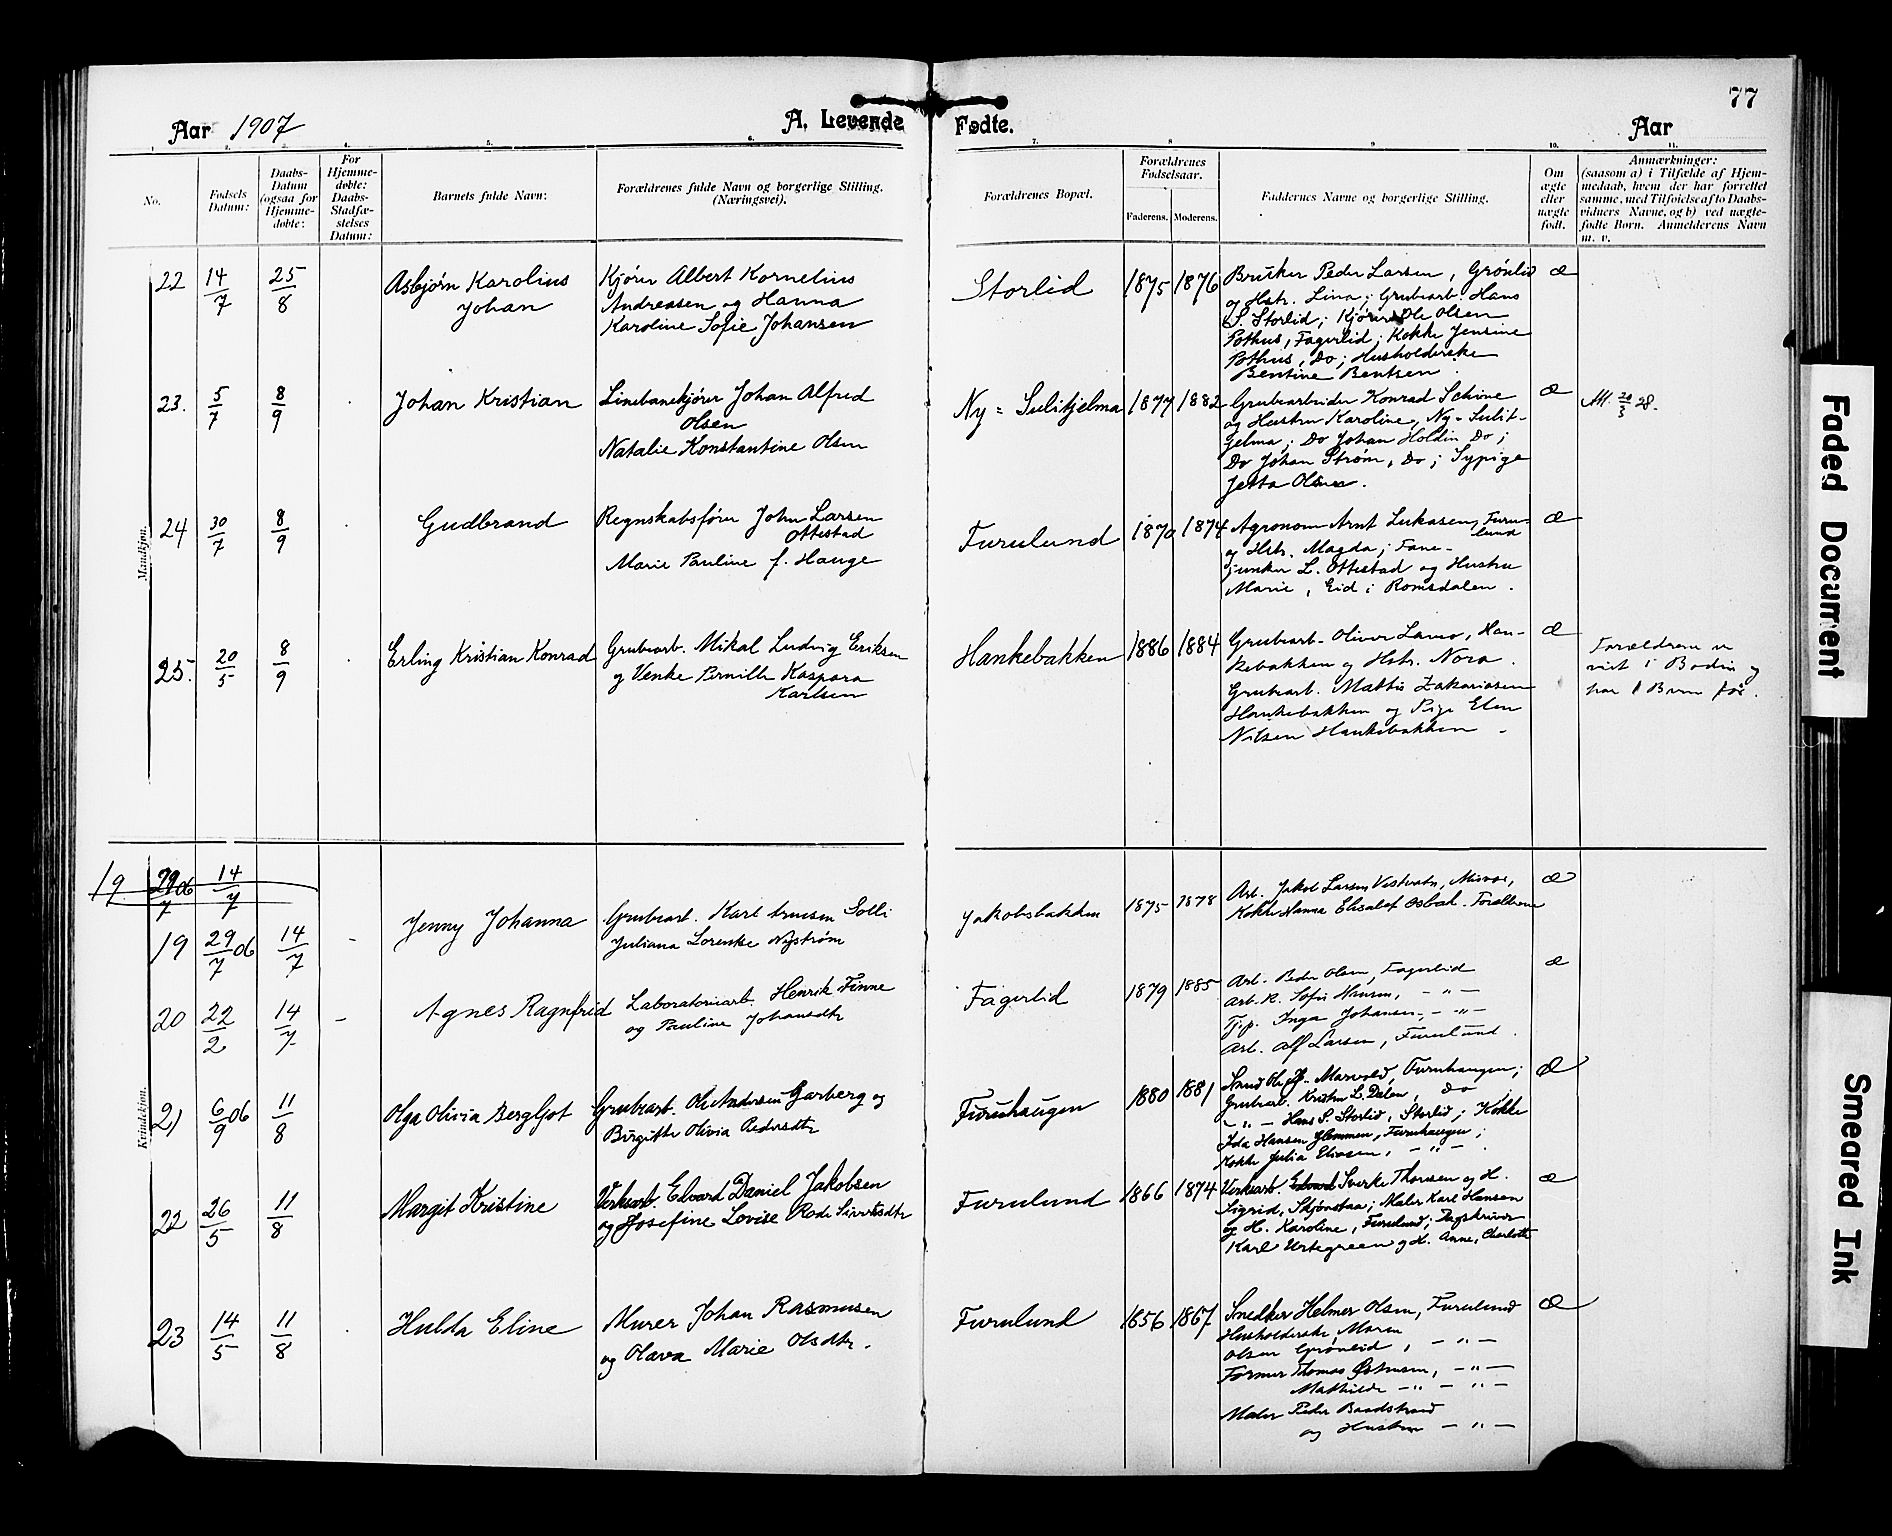 77
Aar 1907
A. Levende Fødte.
Aar
1. 2. 3. 4. 5. 6. 7. 8 9 10. 11.
No.
Fødsels Datum:
Daabs-Datum (ogsaa for Hjemme-døbte:
For Hjemme-døbte: Daabs-Stadfæ-stelses Datum:
Barnets fulde Navn:
Forældrenes fulde Navn og borgerlige Stilling. (Næringsvei).
Forældrenes Bopæl.
Forældrenes Fødselsaar.
Faderens. Moderens.
Faddernes Navne og borgerlige Stilling.
Om ægte eller uægte født.
Anmærkninger:
(saasom a) i Tilfælde af Hjem-
medaab, hvem der har forrettet
samme, med Tilføielse af to Daabs-
vidners Navne, og b) ved uægte-
fødte Børn. Anmelderens Navn
m. v.
Mandkjøn.
22 14/7 25/8 Asbjørn Karolius
Johan
Kjører Albert Kornelius
Andreasen og Hanna
Karoline Sofie Johansen
Storlid 1875 1876
Bruker Peder Larsen, Grønlid
og Hstr. Lina; Grubearb. Hans
S. Storlid; Kjører Ole Olsen
Pothus, Fagerlid; Kokke Jensine
Pothus, Do; Husholderske
Bentine Bentsen.
æ
23. 5/7 8/9 Johan Kristian
Linebanekjører Johan Alfred
Olsen
Natalie Konstantine Olsen
Ny = Sulitjelma 1877 1882
Grubearbeider Konrad Schine
og Hustru Karoline, Ny-Sulit-
jelma; Do Johan Holdin Do;
Do Johan Strøm, Do; Sypige
Jetta Olsen.
æ
M. 20/3 28.
24 30/7 8/9 Gudbrand
Regnskabsfører John Larsen
Ottestad
Marie Pauline f. Hauge
Furulund 1870 1874
Agronom Arnt Lukasen, Furu-
lund
og Hstr. Magda; Fane-
junker L. Ottestad og Hustru
Marie, Eid i Romsdalen.
æ
25. 20/5 8/9 Erling Kristian Konrad
Grubearb. Mikal Ludvig Eriksen
og Venke Pernille Kaspara
Karlsen
Hankebakken 1886 1884
Grubearb. Oliver Lamo, Han-
kebakken og Hstr. Nora.
Grubearb. Mattis Zakariasen
Hankebakken og Pige Elen
Nilsen Hankebakken.
æ
Forældrene er
viet i Bodin og
har 1 Barn før.
Kvindekjøn.
19 29/7 06 14/7
19 29/7 06 14/7 - Jenny Johanna
Grubearb. Karl Arnesen Solli
Juliana Lorentse Nystrøm
Jakobsbakken 1875 1878
Arb. Jakob Larsen Vestvatn, Misvær,
Kokke Hanna Elisabet Osbak. Forældrene
æ
20 22/2 14/7 - Agnes Ragnfrid
Laboratoriearb. Henrik Finne
og Pauline Johansdtr
Fagerlid 1879 1885
Arb. Peder Olsen, Fagerlid
Arb. K. Sofie Hansen, - " -
Tj.p. Inga Johansen, - " -
Arb. Alf Larsen, Furulund.
æ
21 6/9 06 11/8 Olga Olivia Bergljot
Grubearb. Ole Andersen Garberg og
Birgitte Olivia Pedersdtr
Furuhaugen 1880 1881
Smed Ole P. Marvold, Furuhaugen;
Grubearb. Kristen L. Dalen, Do
- " - Hans S. Storlid, Storlid; Kokke
Ida Hansen Glommen, Furuhaugen;
Kokke Julia Eliasen, - " -
æ
22 26/5 11/8 Margit Kristine
Verksarb. Edvard Daniel Jakobsen
og Josefine Lovise Rode Sivertsdtr
Furulund 1866 1874
Verksarb. Edvard Sverke Thoresen og H.
Sigrid, Skjønstaa; Maler Karl Hansen
og H. Karoline, Furulund; Dagskriver
Karl Urtegreen og H. Anne, Charlotte
æ
23 14/5 11/8 Hulda Eline
Murer Johan Rasmusen
og Olava Marie Olsdtr.
Furulund 1856 1867
Snedker Helmer Olsen, Furulund
Husholderske Maren
Olsen Grønlid, - " -
Former Thomas Østensen, - " -
Mathilde - " - - " -
Maler Peder Baadstrand
og Hustru - " -
æ
Faded Document
Smeared Ink